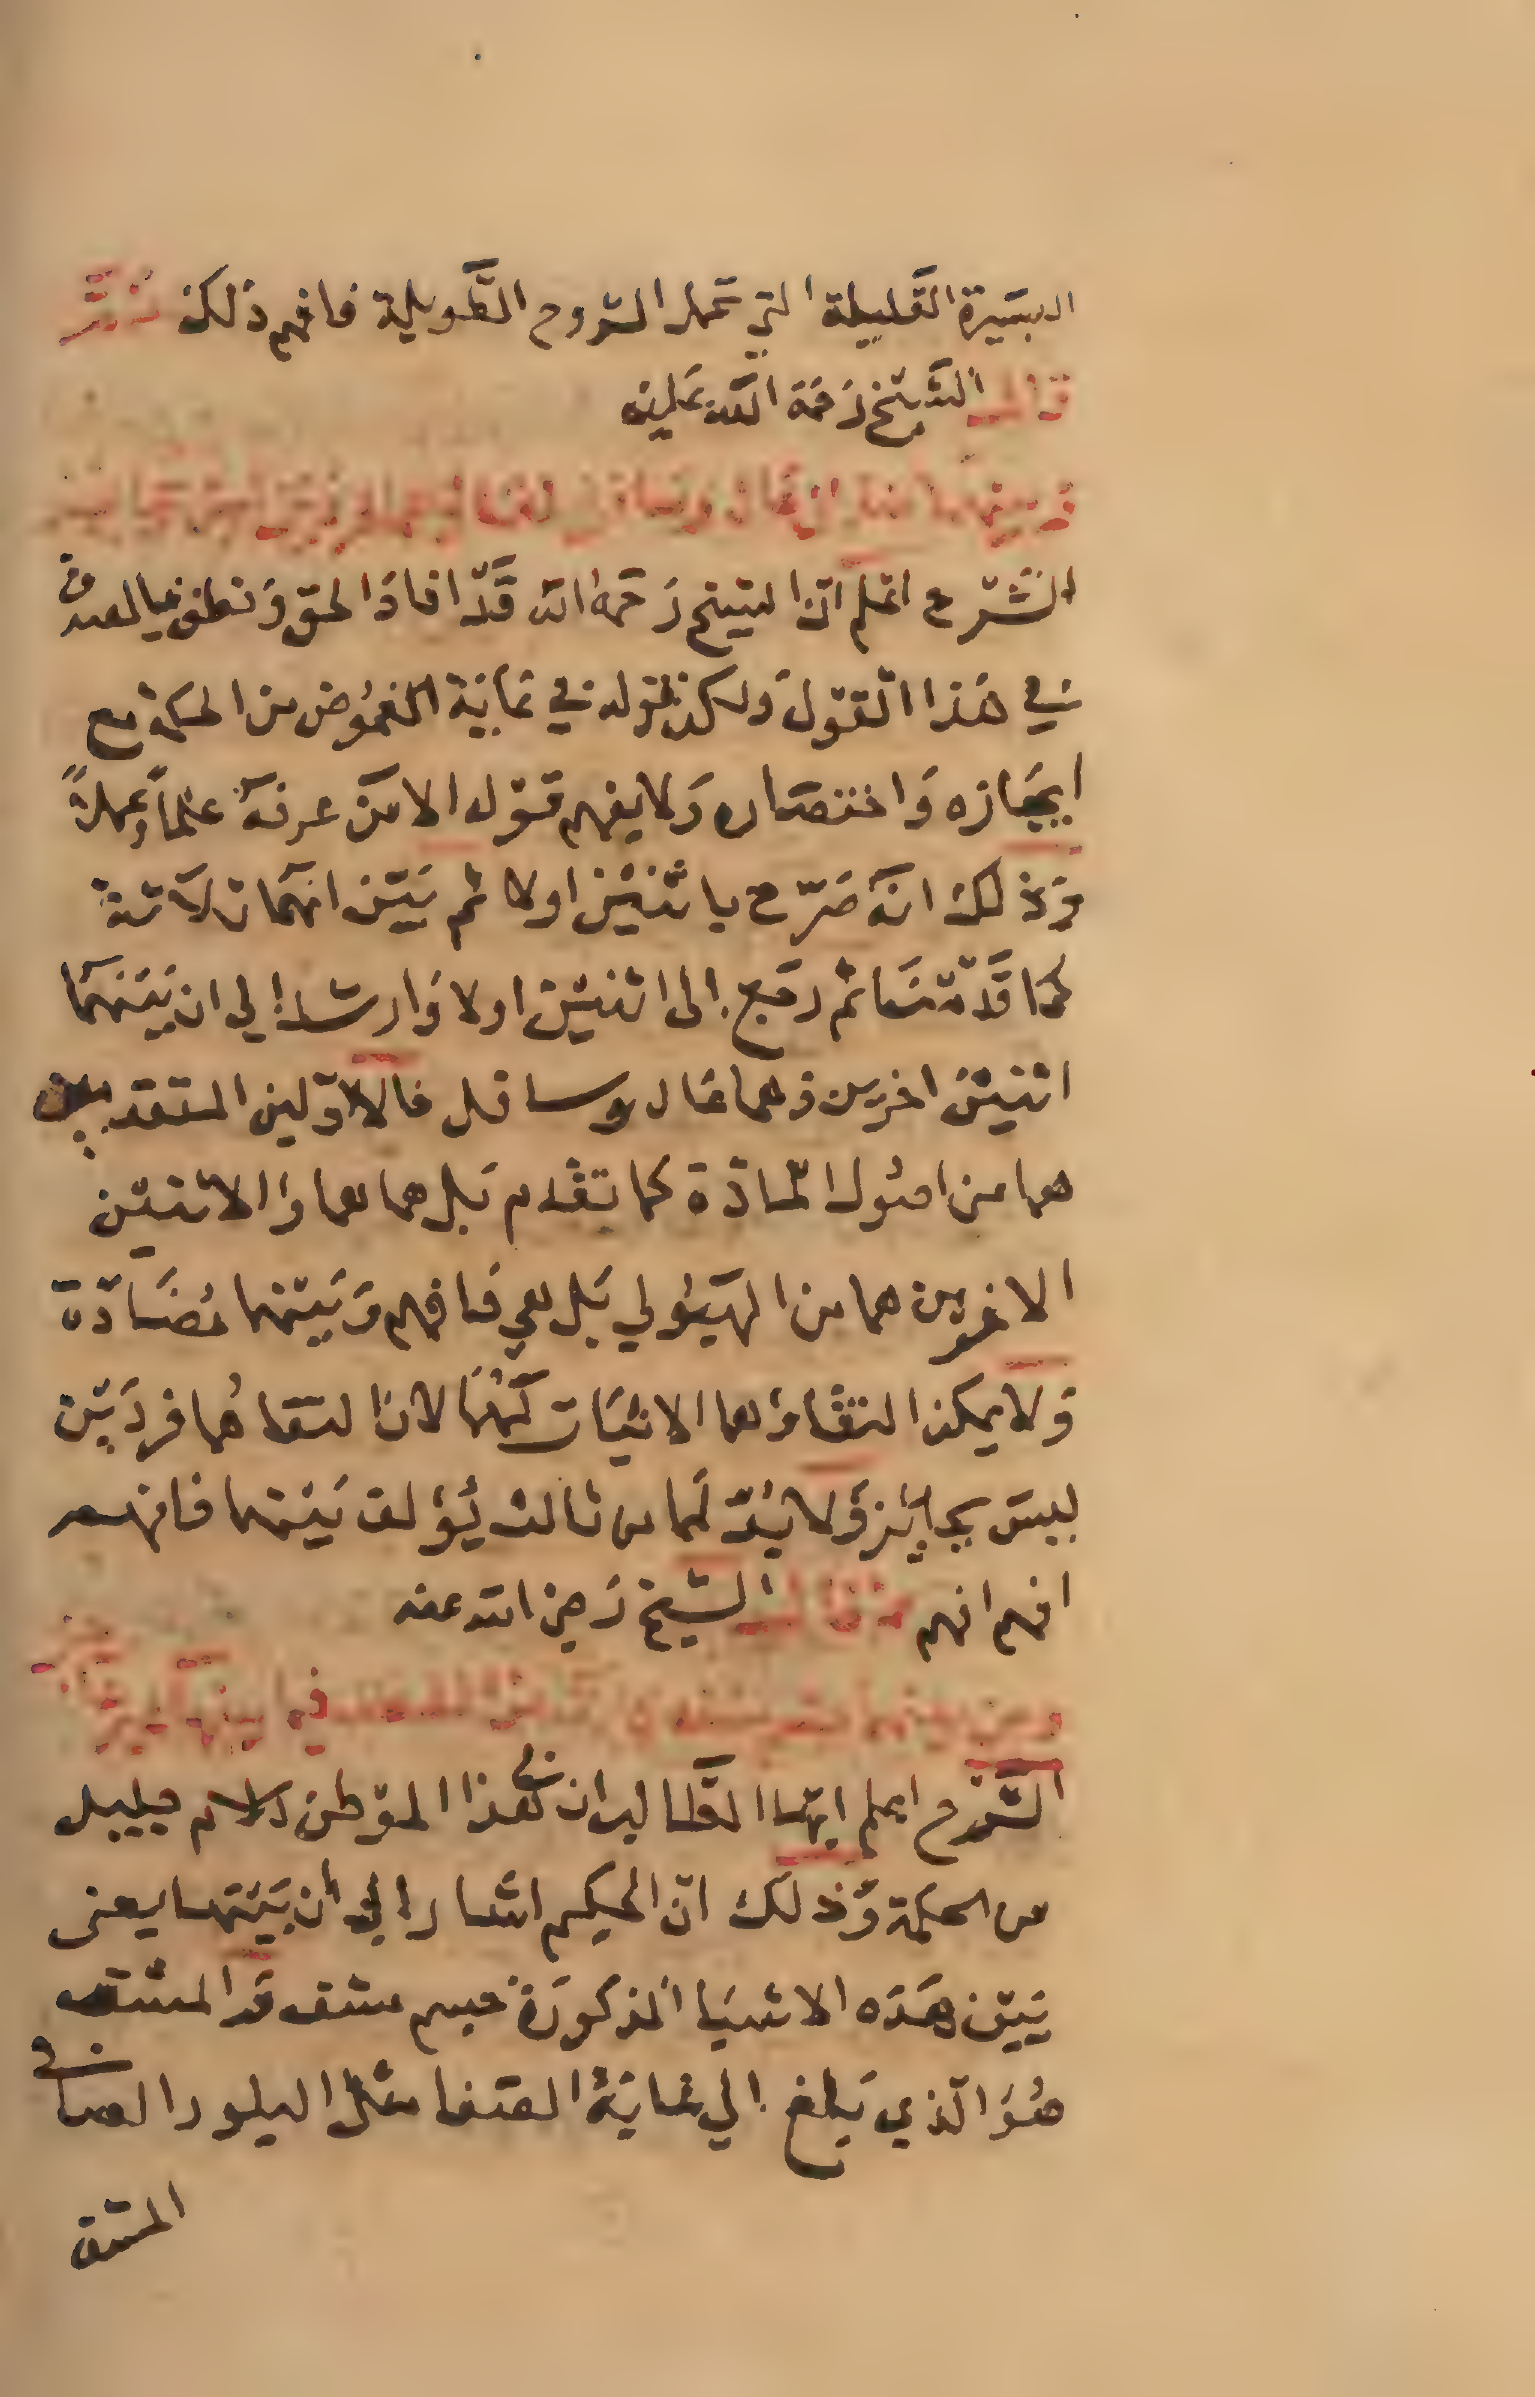 اليسيرة القليلة التي تحمل الشروح الطويلة فافهم ذلك
قال الشيخ رحمة الله عليه
وبينهما ضدان عال وسافل
الشرح اعلم ان الشيخ رحمه الله قد افاد الحق ونطق بالصدق
في هذا القول ولكن قوله في غاية الغموض من الحكمة مع
ايجازه واختصاره ولا يفهم قوله الا من عرفه علماً وعملاً
وذلك انه صرح باثنين اولا ثم بين انهما ثلاثة
كما قدمنا ثم رجع الى اثنين اولا وارشد الي ان بينهما
اثنين اخرين وهما عال وسافل فالاولين المتقدمين
هما من اصول المادة كما تقدم بل هما هما والاثنين
الاخرين هما من الهيولي بل هي فافهم وبينهما مضادة
ولا يمكن التقاؤهما الاثبات لان التقاهما فردين
ليس بجايز ولا بد لهما من ثالث يؤلف بينهما فافهم
افهم افهم قال الشيخ رضي الله عنه
ومن بينهما في
الشرح اعلم ايها الطالب ان في هذا الموطن كلام جليل
من الحكمة وذلك ان الحكيم اشار الي ان بينهما يعني
بين هذه الاشيا المذكورة جسم مشف والمشف
هو الذي بلغ الي غاية الصفا مثل البلور الصافي
المشف